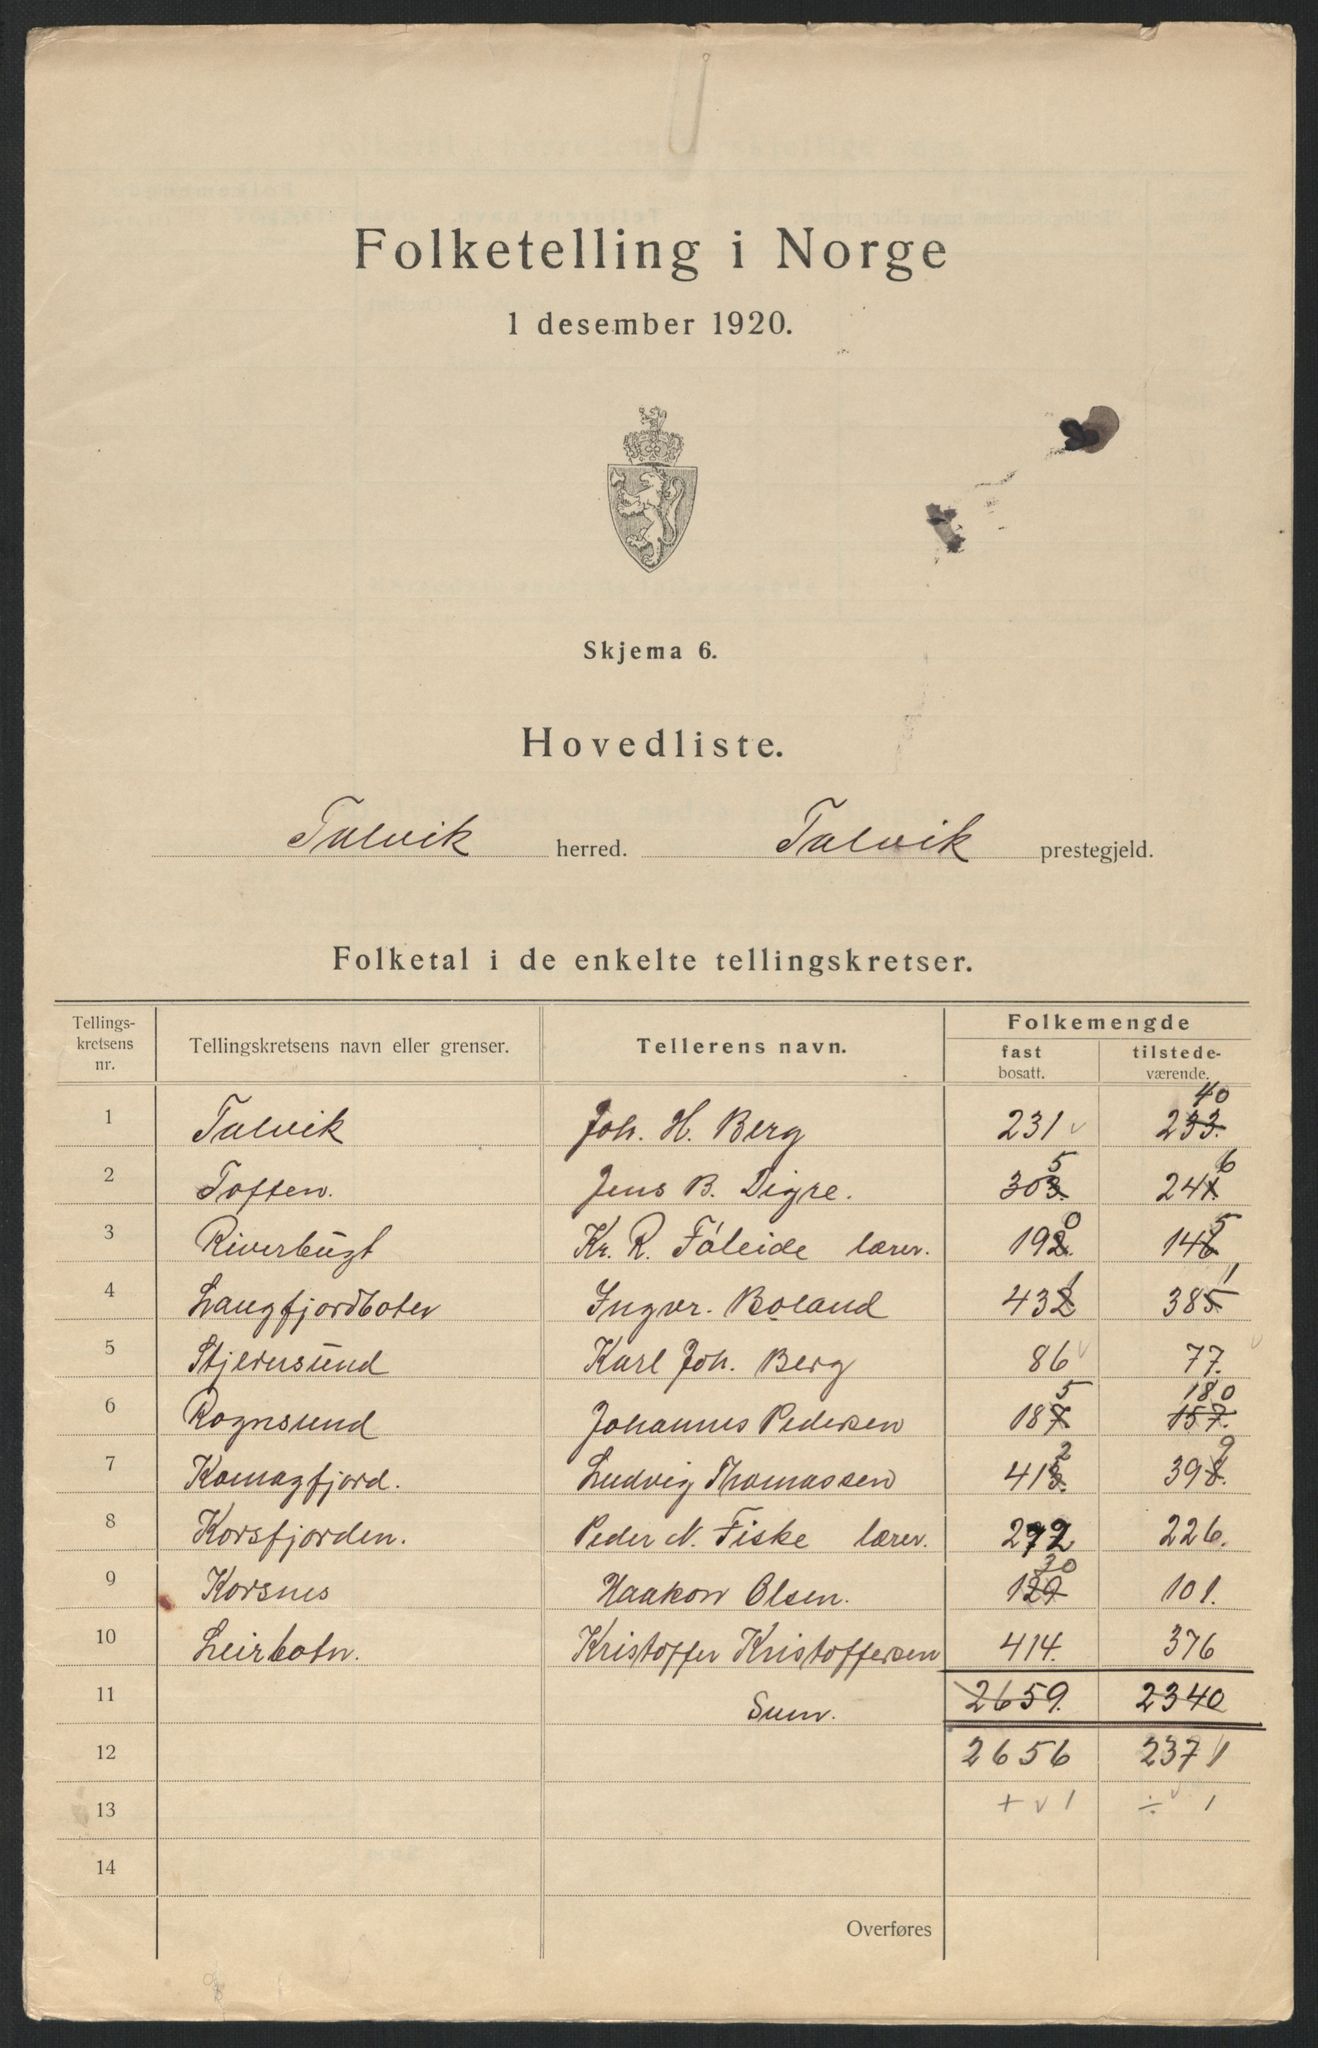 Folketelling i Norge
1 desember 1920.
Skjema 6.
Hovedliste.
Talvik herred. Talvik prestegjeld.
Folketal i de enkelte tellingskretser.
Tellings-kretsens nr. Tellingskretsens navn eller grenser. Tellerens navn. Folkemengde
fast bosatt. tilstede-værende.
40
1 Talvik Joh. H. Berg 231 233.
5 6
2 Toften. Jens B. Digre. 303. 241.
0 5
3 Riverbugt Kr. R. Føleide lærer. 192. 146
1 1
4 Langfjordboten Ingvr. Boland 432 385.
5 Stjernsund Karl Joh. Berg 86 77.
5 180
6 Rognsund Johannes Pedersen 187 157.
2 9
7 Komagfjord. Ludvig Thomassen 413. 398.
8 Korsfjorden. Peder N. Fiske lærer. 272 226.
30
9 Korsnes Haakon Olsen. 129 101.
10 Leirbotn. Kristoffer Kristoffersen 414. 376
11 Sum. 2659. 2340
12 2656 2371
13 + 1 ÷ 1
14
Overføres